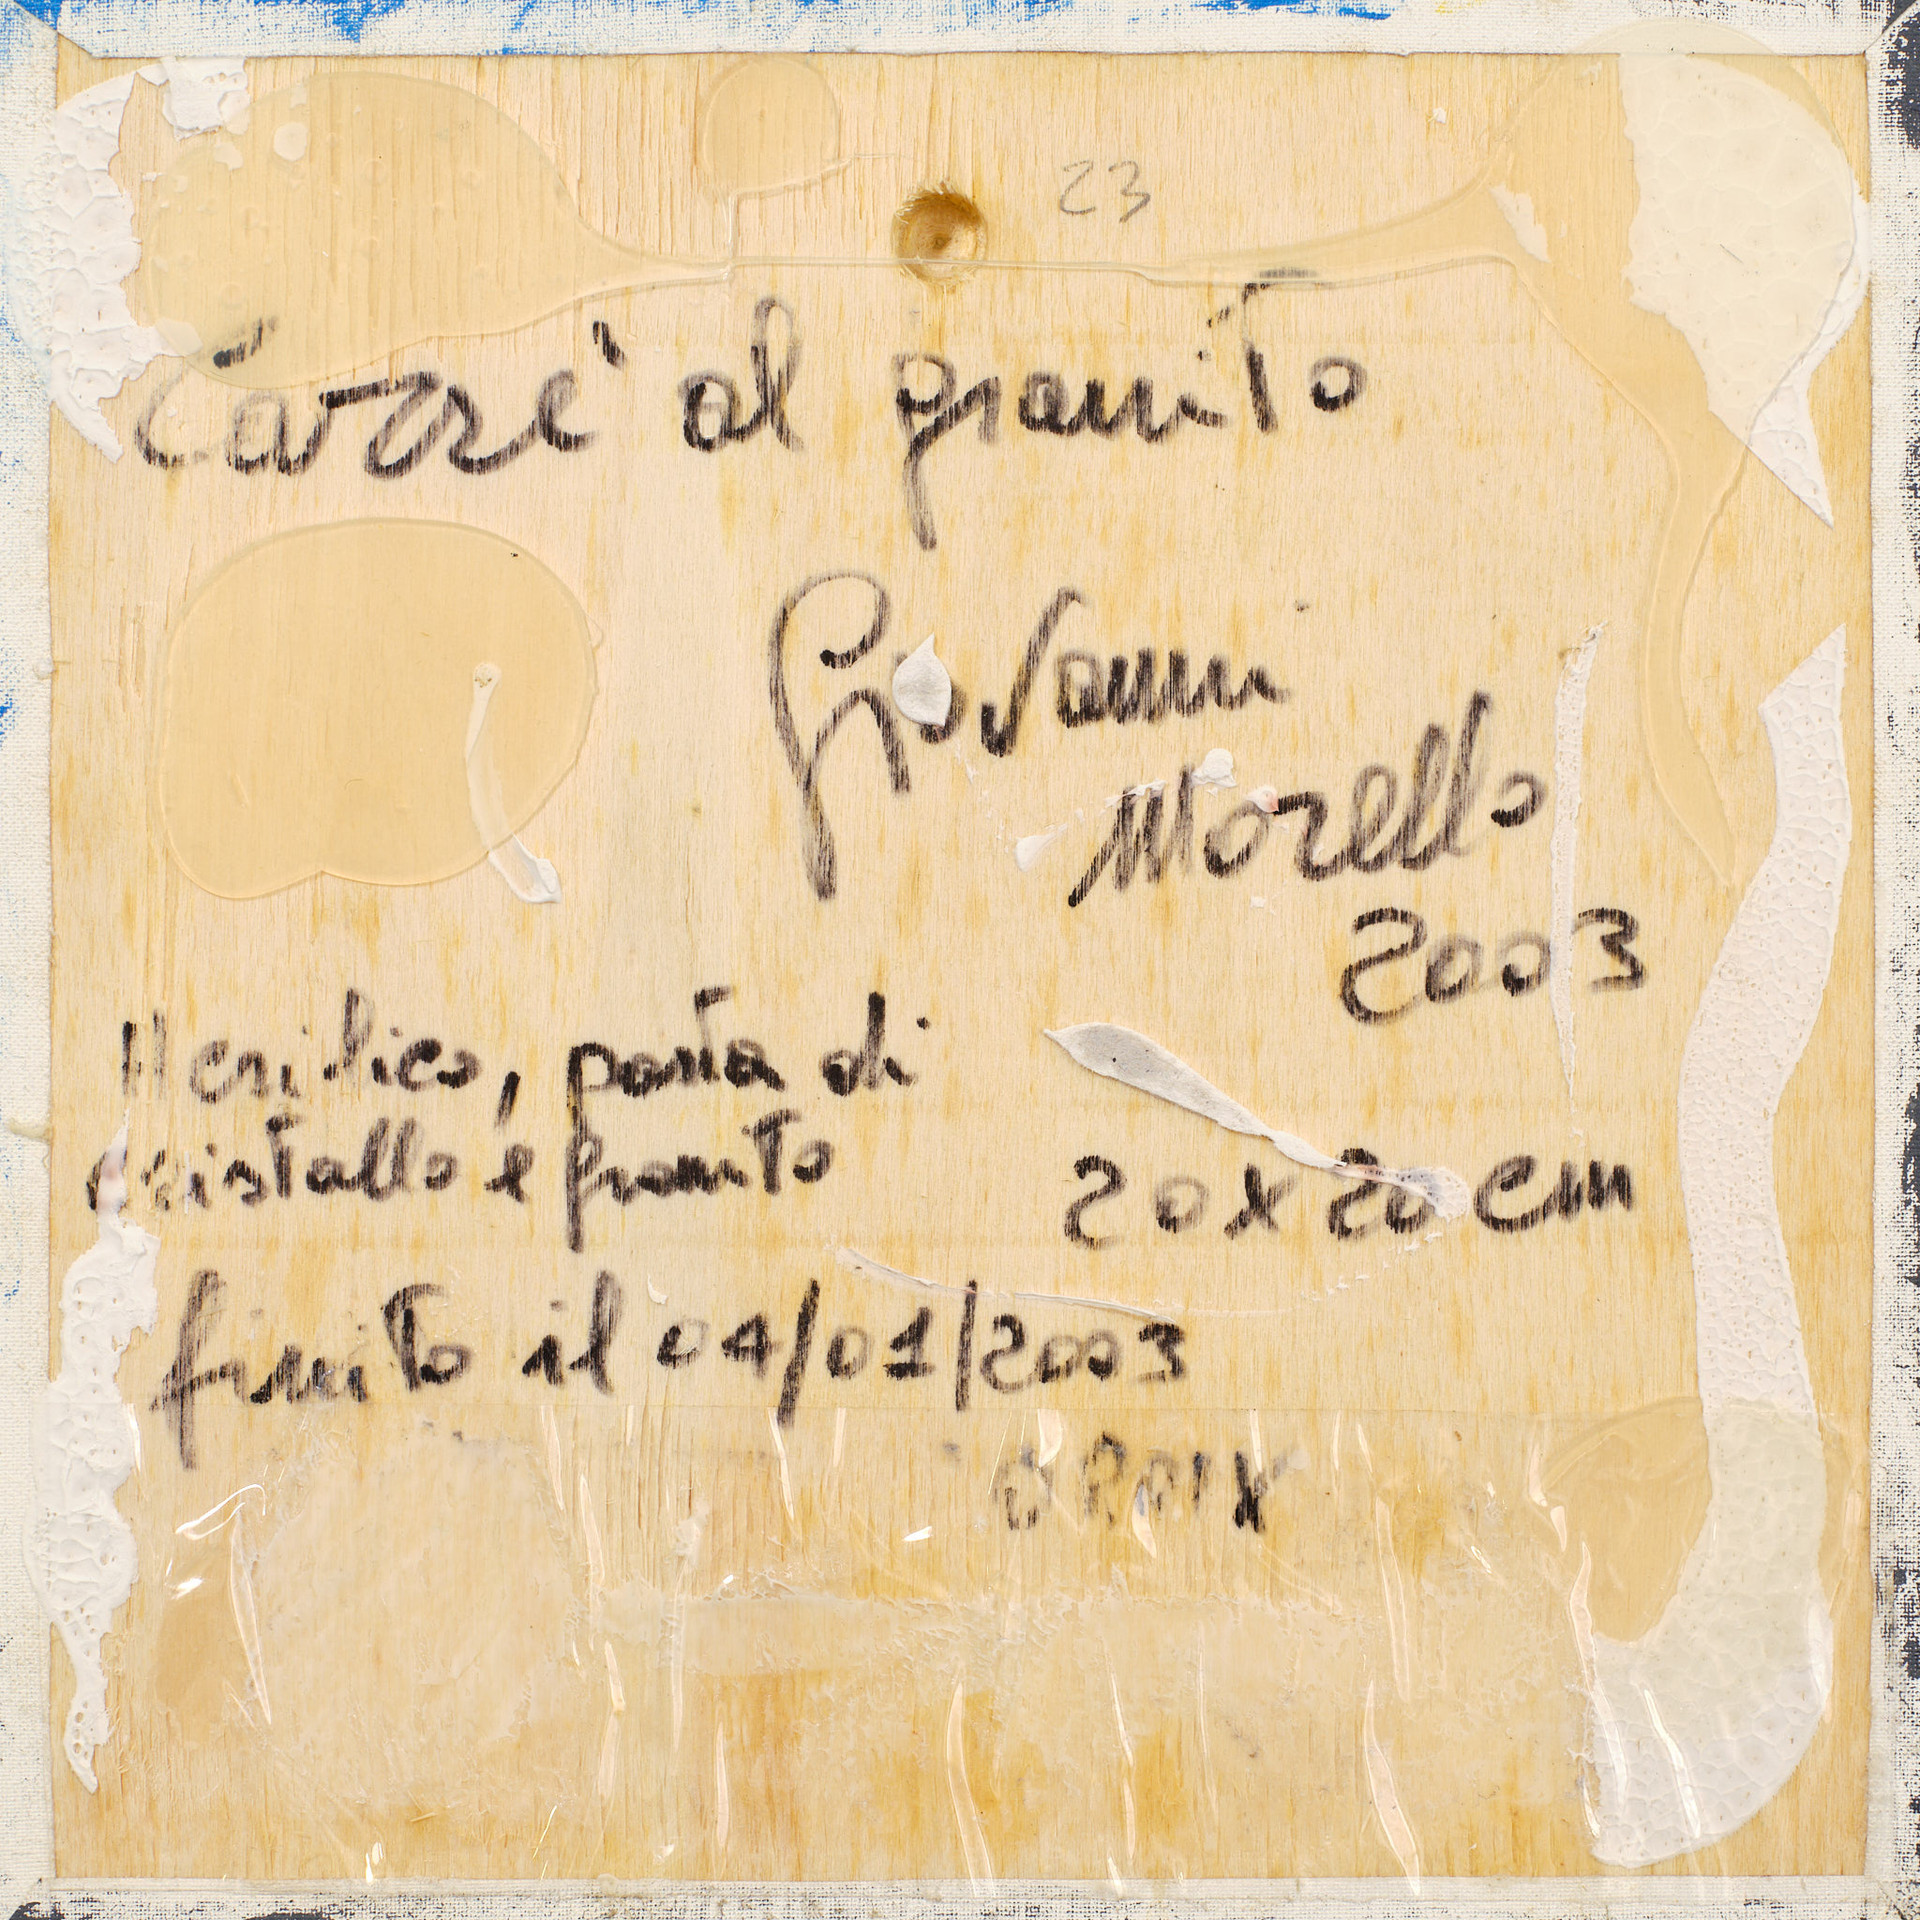 23
Carrè al granito
Giovanni
Morello
2003
Acrilico, pasta di
cristallo e granito
20x20 cm
finito il 04/01/2003